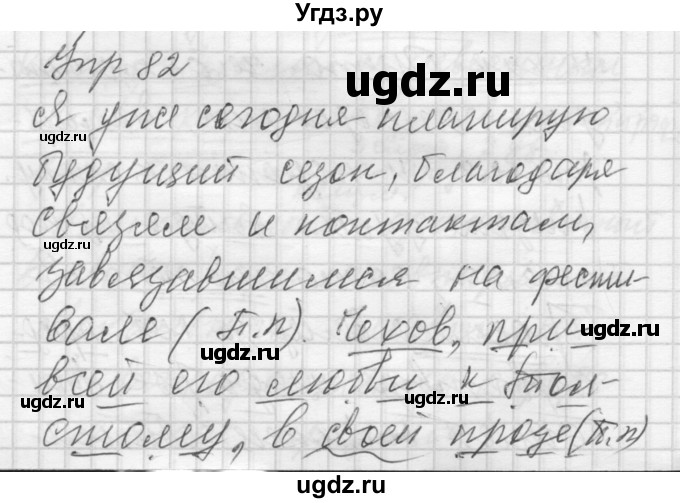 Угдз.ру
Упр 82
Я уже сегодня планирую
будущий сезон, благодаря
связям и контактам,
завязавшимся на фести-
вале (П.п). Чехов, при
всей его любви к Тол-
стому, в своей прозе (П.п)
ugdz.ru
ugdz.ru
ugdz.ru
ugdz.ru
ugdz.ru
ugdz.ru
ugdz.ru
ugdz.ru
Угдз.ру